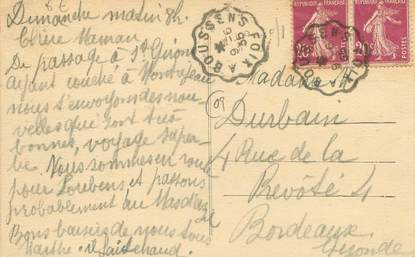 Dimanche matin 8h.
Chère Maman
De passage à St Girons
ayant couché à Montréjeau
nous t'envoyons des nou-
velles qui sont très
bonnes, voyage super-
be. Nous sommes en route
pour Loubens et passons
probablement au Mas d'Azil
Bons baisers de nous tous
Marthe.
FOIX A BOUSSENS
FOIX A BOUSSENS
Madame
Durbain
4 Rue de la
Prevôté 4
Bordeaux
Gironde